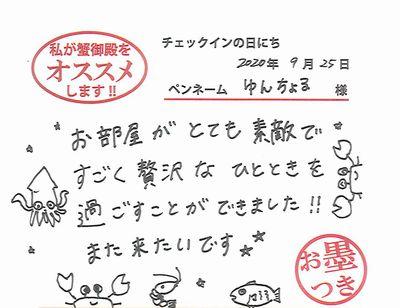 私が蟹御殿を
オススメ
します!!
チェックインの日にち
2020年 9月 25日
ペンネーム ゆんちょる 様
お部屋が とても 素敵で
すごく 贅沢な ひとときを
過ごすことができました!!
また来たいです
お墨
つき